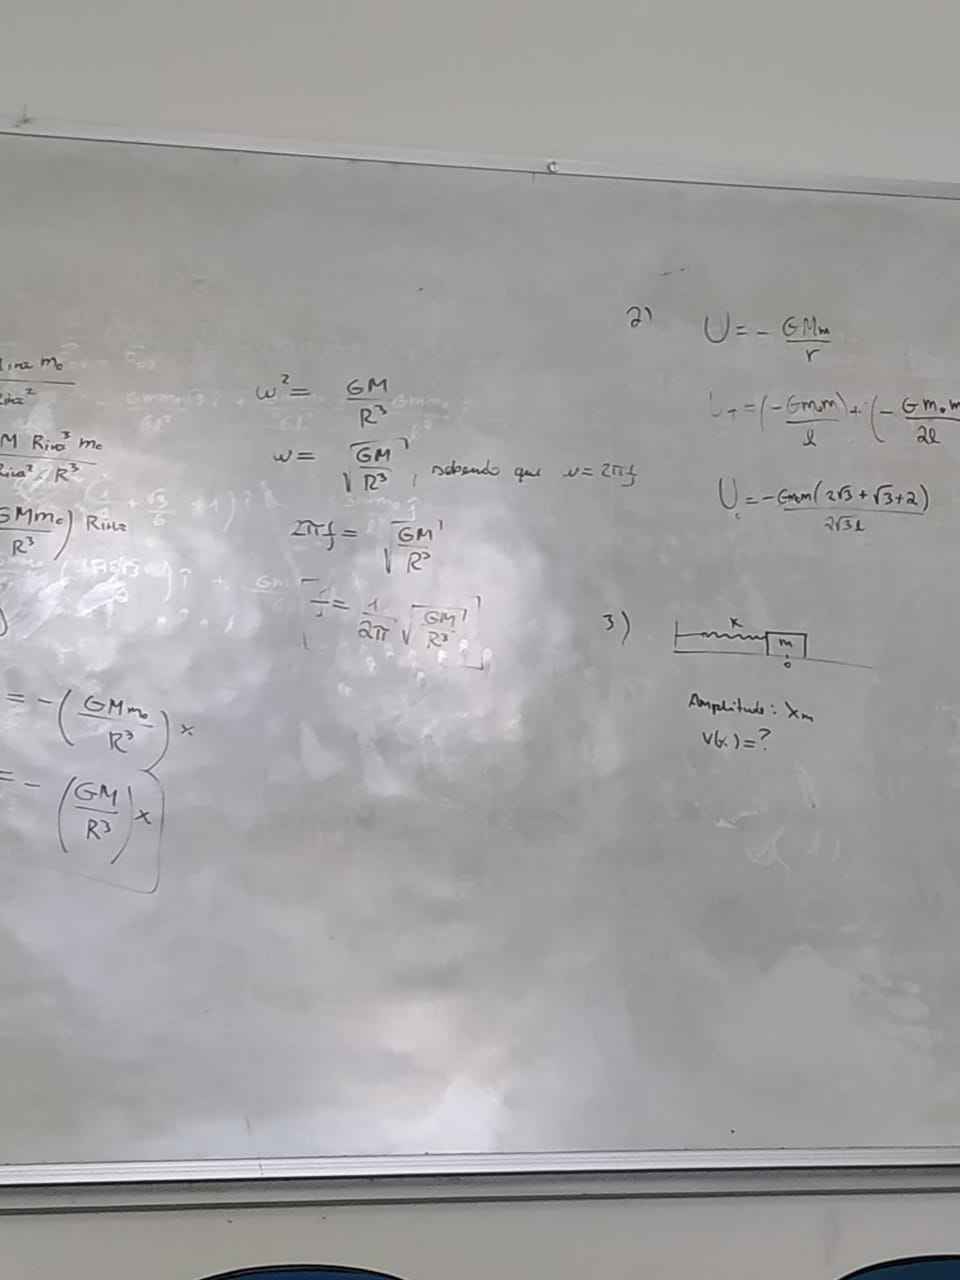 m₀
M Rint³ m₀
R³
GMm₀) Rint
R³
= -(GMm₀/R³) x
= -(GM/R³) x
ω² = GM/R³
ω = √(GM/R³), sabendo que ω = 2πf
2πf = √(GM/R³)
f = 1/2π √(GM/R³)
2) U = - GMm/r
= (-Gm₀m/l) + (- Gm₀m/2l
U = -Gm₀m(2√3 + √3 + 2)/2√3l
3)
K
m
0
Amplitude: xm
V(x) = ?